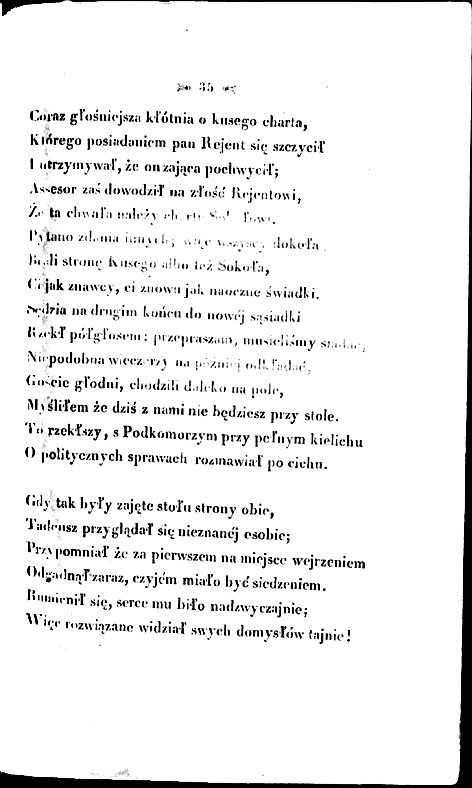 35
Coraz głośniejsza kłótnia o kusego charta,
Którego posiadaniem pan Rejent się szczycił
I utrzymywał, że on zająca pochwycił;
Assesor zaś dowodził na złość Rejentowi,
Że ta chwała należy
Pytano zdania innych; więc wszyscy dokoła
Brali stronę Kusego albo też Sokoła,
Ci jak znawcy, ci znowu jak naoczne świadki.
Sędzia na drugim końcu do nowéj sąsiadki
Rzekł półgłosem: przepraszam, musieliśmy siadać,
Niepodobna wieczerzy na późniéj odkładać,
Goście głodni, chodzili daleko na pole,
Myśliłem że dziś z nami nie będziesz przy stole.
To rzekłszy, s Podkomorzym przy pełnym kielichu
O politycznych sprawach rozmawiał po cichu.
Gdy tak były zajęte stołu strony obie,
Tadeusz przyglądał się nieznanéj osobie;
Przypomniał że za pierwszem na miejsce wejrzeniem
Odgadnął zaraz, czyjém miało być siedzeniem.
Rumienił się, serce mu biło nadzwyczajnie;
Więc rozwiązane widział swych domysłów tajnie!